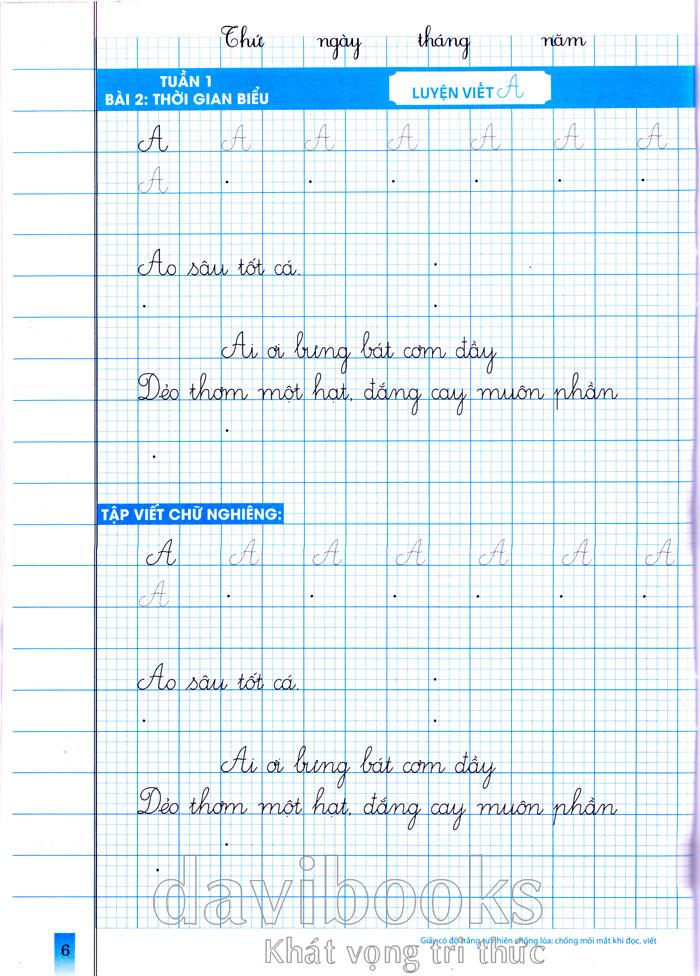 Thứ ngày tháng năm
TUẦN 1
BÀI 2: THỜI GIAN BIỂU
LUYỆN VIẾT A
A A A A A A A
A . . . . . .
Ao sâu tốt cá. .
. .
Ai ơi bưng bát cơm đầy
Dẻo thơm một hạt, đắng cay muôn phần
.
.
TẬP VIẾT CHỮ NGHIÊNG:
A A A A A A A
A . . . . . .
Ao sâu tốt cá. .
. .
Ai ơi bưng bát cơm đầy
Dẻo thơm một hạt, đắng cay muôn phần
.
.
davibooks
Giấy có độ trắng tự nhiên chống lóa; chống mỏi mắt khi đọc, viết
Khát vọng tri thức
6